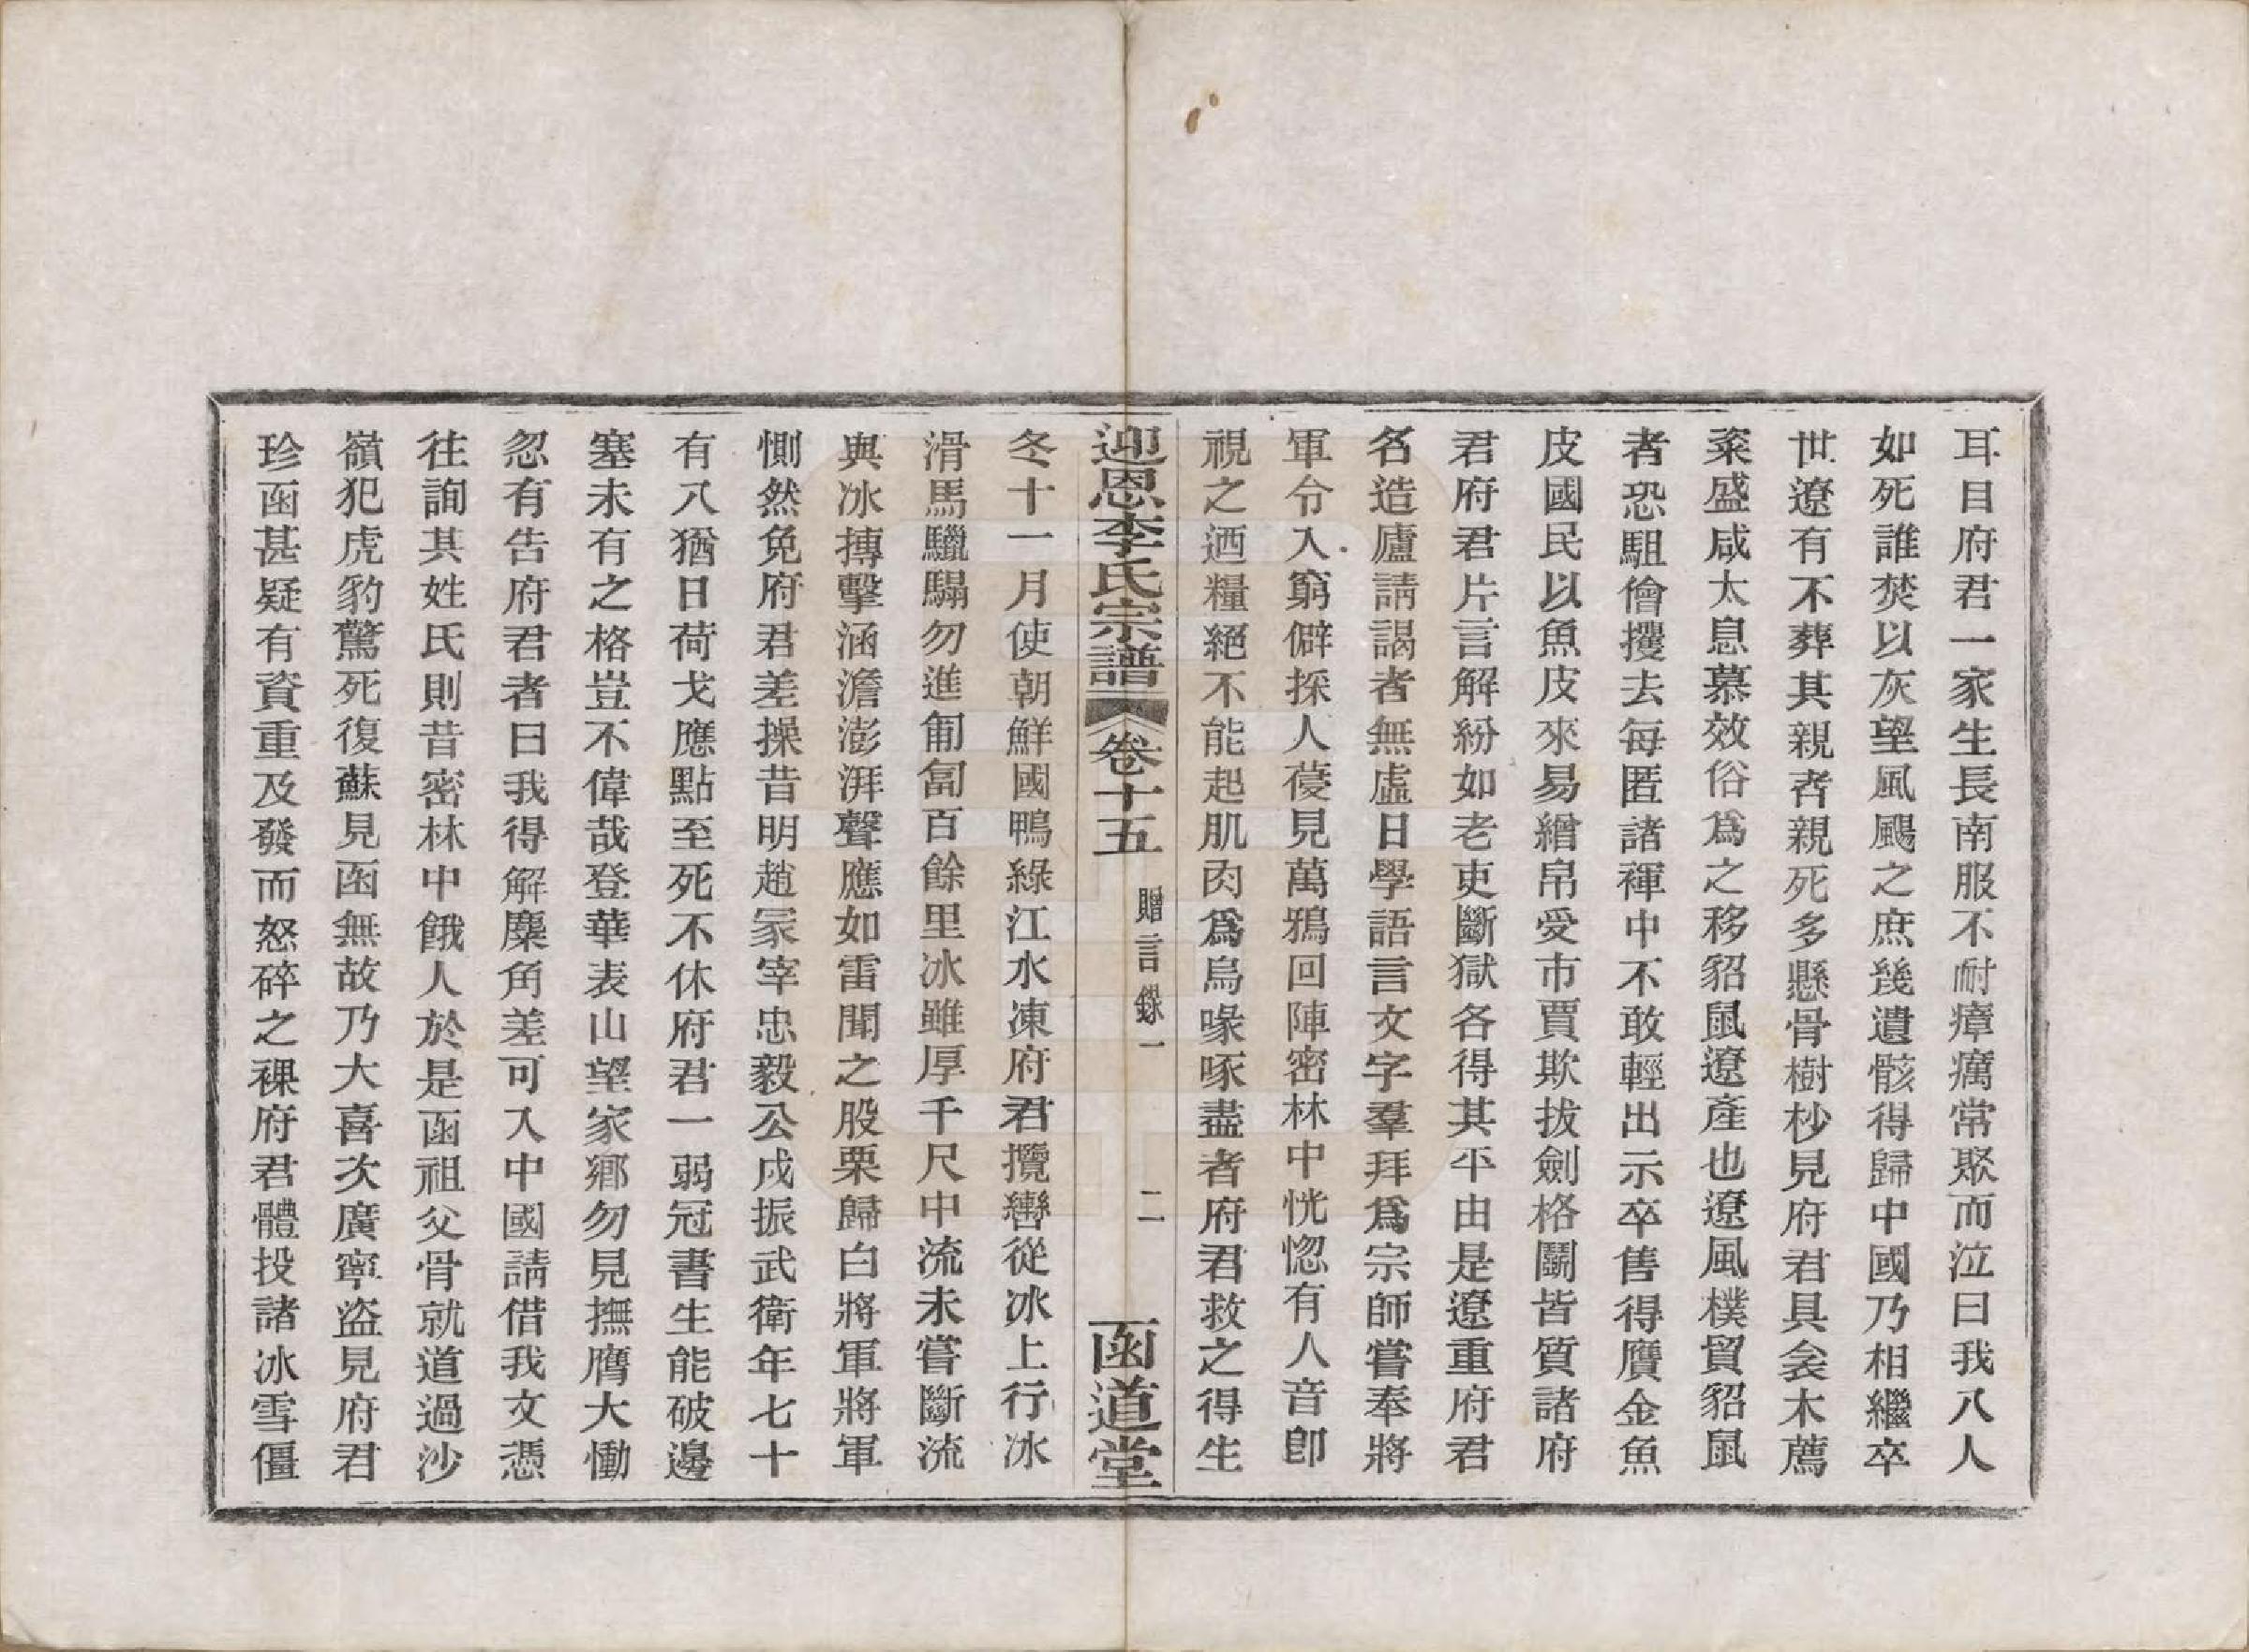 耳目府君一家生長南服不耐瘴癘常聚而泣曰我八人
如死誰焚以灰望風颺之庶幾遺骸得歸中國乃相繼卒
世遼有不葬其親者親死多懸骨樹杪見府君具衾木薦
粢盛咸太息慕效俗爲之移貂鼠遼產也遼風樸貿貂鼠
者恐駔儈攫去每匿諸褌中不敢輕出示卒售得贋金魚
皮國民以魚皮來易繒帛受市賈欺拔劍格鬭皆質諸府
君府君片言解紛如老吏斷獄各得其平由是遼重府君
名造廬請謁者無虛日學語言文字羣拜爲宗師嘗奉將
軍令入窮僻採人葠見萬鴉回陣密林中恍惚有人音卽
視之迺糧絕不能起肌肉爲烏喙啄盡者府君救之得生
迎恩李氏宗譜 卷十五 贈言錄一 二 函道堂
冬十一月使朝鮮國鴨綠江水凍府君攬轡從冰上行冰
滑馬驪騧勿進匍匐百餘里冰雖厚千尺中流未嘗斷流
與冰摶擊涵澹澎湃聲應如雷聞之股栗歸白將軍將軍
惻然免府君差操昔明趙冢宰忠毅公戍振武衛年七十
有八猶日荷戈應點至死不休府君一弱冠書生能破邊
塞未有之格豈不偉哉登華表山望家鄉勿見撫膺大慟
忽有告府君者曰我得解麋角差可入中國請借我文憑
往詢其姓氏則昔密林中餓人於是函祖父骨就道過沙
嶺犯虎豹驚死復蘇見函無故乃大喜次廣寧盜見府君
珍函甚疑有資重及發而怒碎之裸府君體投諸冰雪僵